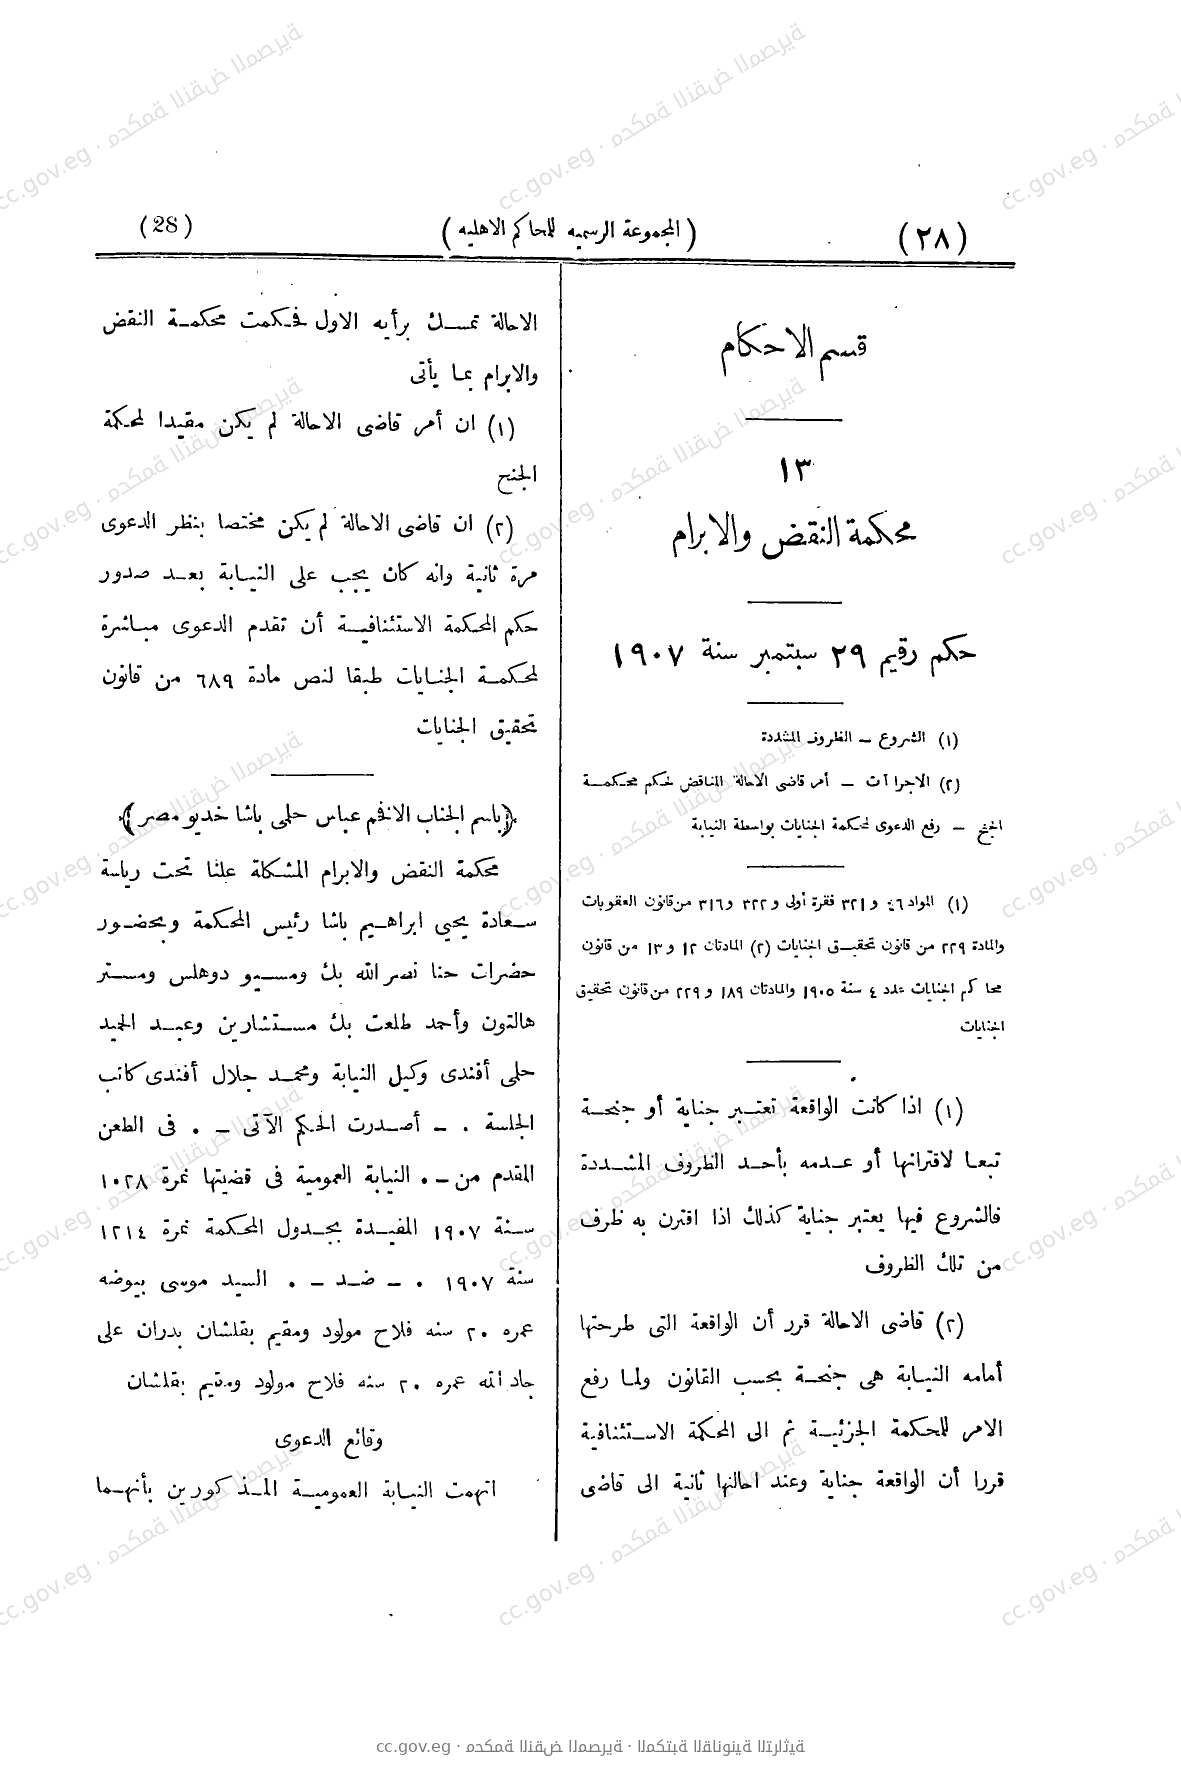 (٢٨)
(المجموعة الرسميه للمحاكم الاهليه)
(28)
قسم الاحكام
١٣
محكمة النقض والابرام
حكم رقيم ٢٩ سبتمبر سنة ١٩٠٧
(١) الشروع – الظروف المشددة
(٢) الاجراآت – أمر قاضى الاحالة المناقض لحكم محكمة
الجنح – رفع الدعوى لمحكمة الجنايات بواسطة النيابة
(١) المواد ٤٦ و ٣٢١ فقرة أولى و ٣٢٢ و ٣١٦ من قانون العقوبات
والمادة ٢٢٩ من قانون تحقيق الجنايات (٢) المادتان ١٢ و ١٣ من قانون
محاكم الجنايات عدد ٤ سنة ١٩٠٥ والمادتان ١٨٩ و ٢٢٩ من قانون تحقيق
الجنايات
(١) اذا كانت الواقعة تعتبر جناية أو جنحة
تبعا لاقترانها أو عدمه بأحد الظروف المشددة
فالشروع فيها يعتبر جناية كذلك اذا اقترن به ظرف
من تلك الظروف
(٢) قاضى الاحالة قرر أن الواقعة التى طرحتها
أمامه النيابة هى جنحة بحسب القانون ولما رفع
الامر للمحكمة الجزئية ثم الى المحكمة الاستئنافية
قررا أن الواقعة جناية وعند احالتها ثانية الى قاضى
الاحالة تمسك برأيه الاول فحكمت محكمة النقض
والابرام بما يأتى
(١) ان أمر قاضى الاحالة لم يكن مقيدا لمحكمة
الجنح
(٢) ان قاضى الاحالة لم يكن مختصا بنظر الدعوى
مرة ثانية وانه كان يجب على النيابة بعد صدور
حكم المحكمة الاستئنافية أن تقدم الدعوى مباشرة
لمحكمة الجنايات طبقا لنص مادة ٦٨٩ من قانون
تحقيق الجنايات
(باسم الجناب الافخم عباس حلمى باشا خديو مصر)
محكمة النقض والابرام المشكلة علنا تحت رياسة
سعادة يحيى ابراهيم باشا رئيس المحكمة وبحضور
حضرات حنا نصر الله بك ومسيو دوهلس ومستر
هالتون وأحمد طلعت بك مستشارين وعبد المجيد
حلمى أفندى وكيل النيابة ومحمد جلال أفندى كاتب
الجلسة . – أصدرت الحكم الآتى – . فى الطعن
المقدم من – . النيابة العمومية فى قضيتها نمرة ١٠٢٨
سنة ١٩٠٧ المقيدة بجدول المحكمة نمرة ١٢١٤
سنة ١٩٠٧ . – ضد – . السيد موسى بيوضه
عمره ٢٠ سنه فلاح مولود ومقيم بقلشان بدران على
جاد الله عمره ٢٠ سنه فلاح مولود ومقيم بقلشان
وقائع الدعوى
اتهمت النيابة العمومية المذكورين بأنهما
cc.gov.eg · محكمة النقض المصرية · المكتبة القانونية التراثية